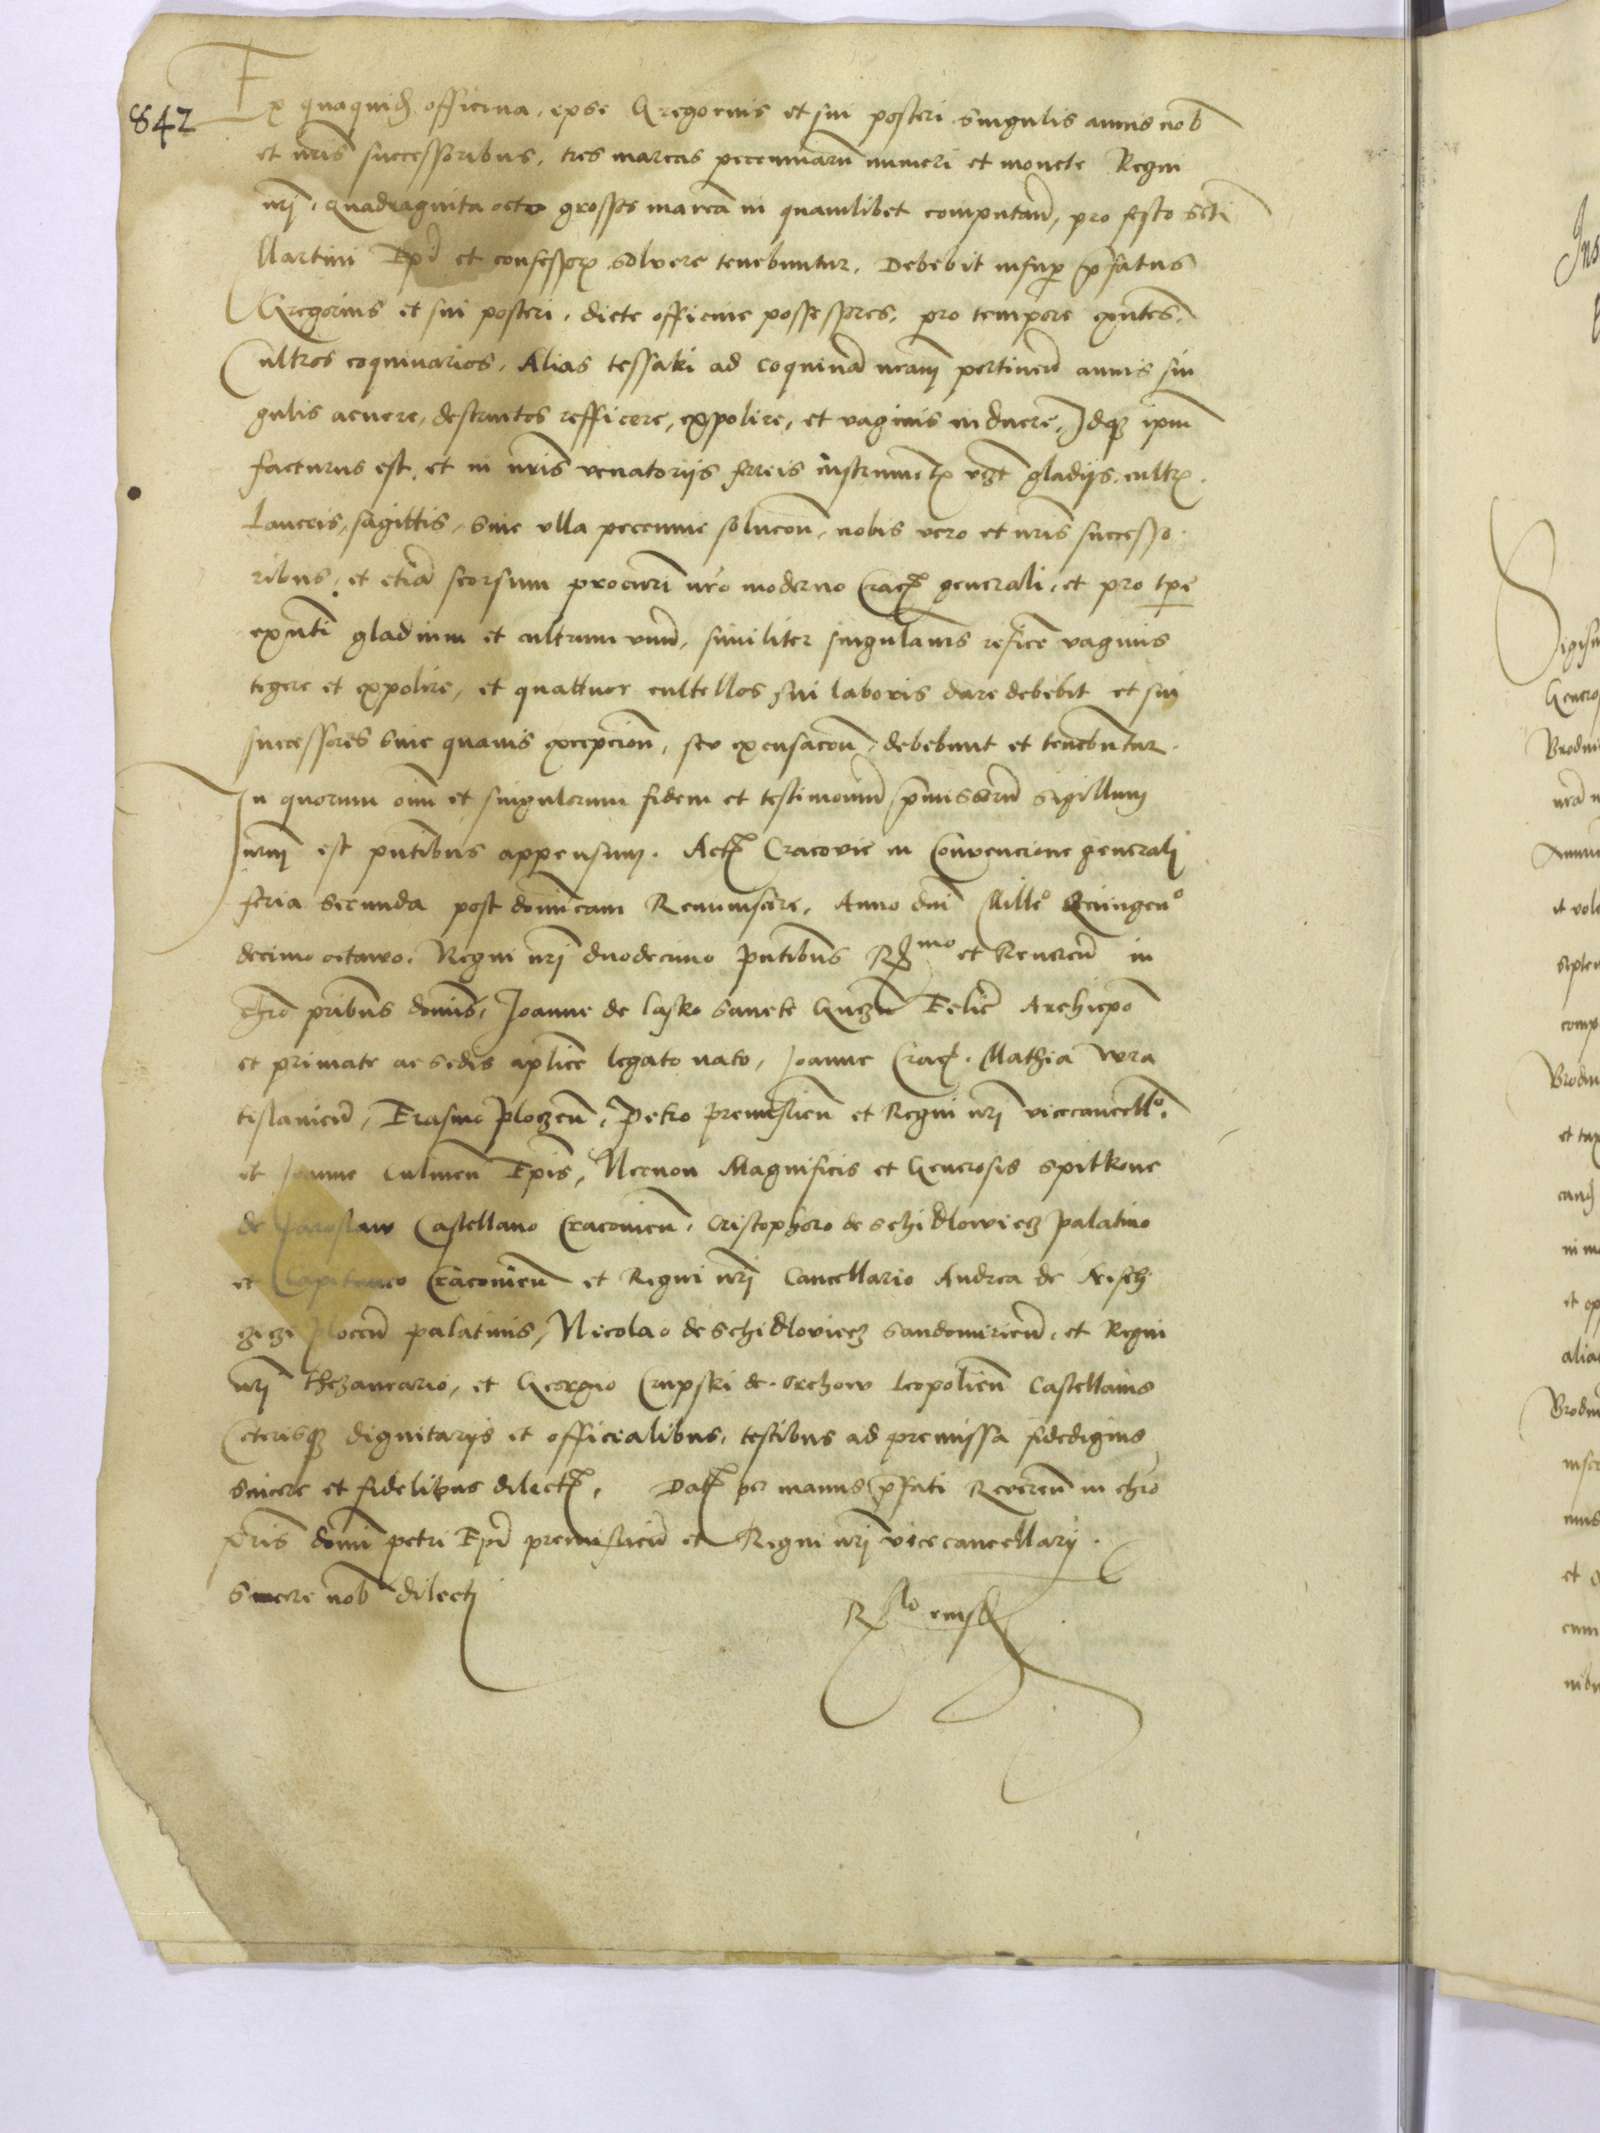 842
Ex quaquid officina, epse Gregorius et sui posteri singulis annis nob
et nris successoribus, tres marcas pecuniarum numeri et monete Regni
nri, quadraginta octo grossos marcam in quamlibet computand, pro festo Scti
Martini Epi et confessor solvere tenebuntur. Debebit insup pfatus
Gregorius et sui posteri, dicte officine possessores, pro tempore exntes,
Cultros coquinarios, Alias tessaki ad coquinam nram pertinen annis sin
gulis acuere, destructos refficere, expolire, et vaginis inducere, Idq ipm
facturus est, et in nris venatoriis ferreis instrument vzt gladiis, cultr
Lanceis, sagittis, sine ulla pecunie solucon, nobis vero et nris successo
ribus, et etiam seorsum procuri nro moderno Crac generali, et pro tpe
exnti gladium et cultrum unum, similiter singulannis refice vaginis
tegere et expolire, et quattuor cultellos sui laboris dare debebit et sui
successores sine quavis excepcion, seu excusacon, debebunt et tenebuntur.
In quorum oim et singulorum fidem et testimonium pmissorum sigillum
nrm est pntibus appensum. Act Cracovie in Convencione generali
feria secunda post dominicam Reminiscere, Anno dni Millo Quingeno
decimo octavo. Regni nri duodecimo pntibus Rmo et Reveren in
chro pribus dominis, Joanne de Lasko sancte Gnezn Eclie Archiepo
et primate ac sedis aplice legato nato, Joanne Crac. Mathia Wra
tislavien, Erasmo Plocen, Petro premislien et Regni nri vicecancello,
et Joanne Culmen Epis, Necnon Magnificis et Generosis Spitkone
de Jaroslaw Castellano Cracovien, Cristophoro de Schidlowiecz palatino
et Capitaneo Cracovien et Regni nri Cancellario Andrea de
Plocen palatinis, Nicolao de Schidloviecz Sandomirien, et Regni
nri thezaurario, et Georgio Crupski de Orchow Leopolien Castellanis
Ceterisq dignitariis et officialibus, testibus ad premissa fidedignis
sincere et fidelibus dilect, Dat per manus pfati Reveren in chro
pris domi petri Epi premislien et Regni nri vicecancellarii
sincere nob dilecti
Rlo eiusd